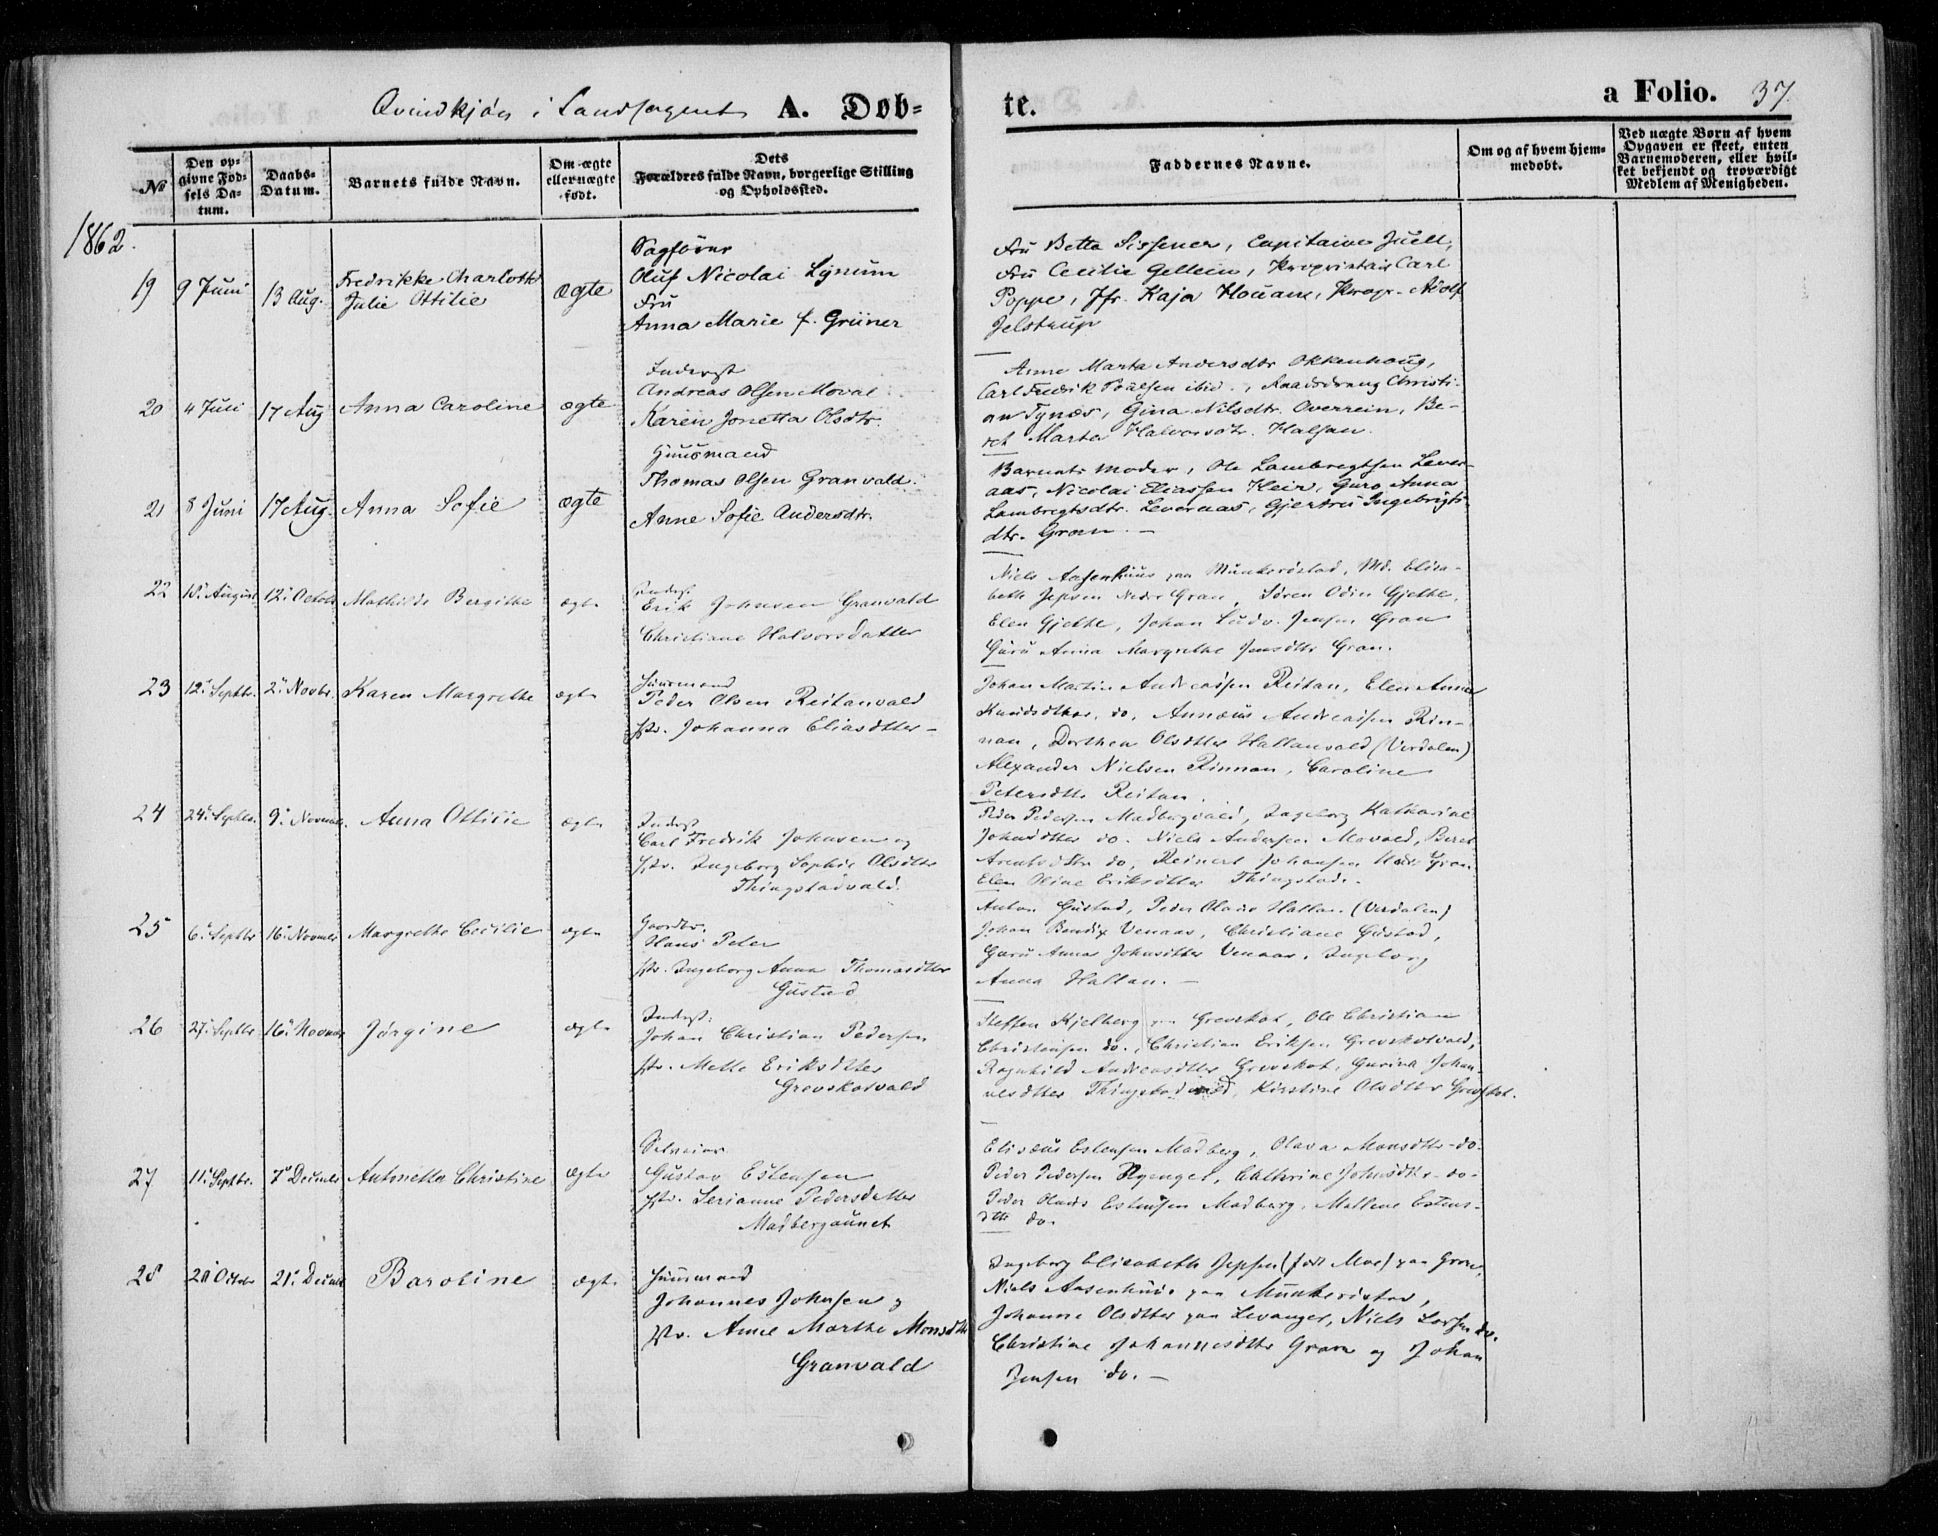 Qvindkjøn i Landsognet A. Døb- te. a Folio. 37.
No
Den opgivne Fødsels Datum.
Daabs-Datum.
Barnets fulde Navn.
Om ægte eller uægte født.
Dets Forældres fulde Navn, borgerlige Stilling og Opholdssted.
Faddernes Navne.
Om og af hvem hjemmedøbt.
Ved uægte Børn af hvem Opgaven er skeet, enten Barnemoderen, eller hvilket bekjendt og troværdigt Medlem af Menigheden.
1862.
19 9 Juni 13 Aug. Fredrikke Charlotte Julie Ottilie ægte
Sagfører
Oluf Nicolai Lynum
Fru
Anna Marie f. Grüner
Fru Betta Sissener, Capitaine Juell,
Fru Cecilie Gellein, Proprietair Carl
Poppe, Jfr. Kaja Houann, Propr. Adolf
Jelstrup
20 4 Juli 17 Aug Anna Caroline ægte
Inderst
Andreas Olsen Moval
Karen Jonetta Olsdtr.
Anne Marta Andersdtr Okkenhoug,
Carl Fredrik Poulsen ibid., Christi-
an Tynæs, Gina Nilsdtr. Overrein, Be-
ret Marta Halvorsdtr. Halsan.
21 8 Juni 17 Aug. Anna Sofie ægte
Huusmand
Thomas Olsen Granvald.
Anne Sofie Andersdtr.
Barnets Moder, Ole Lambregtsen Lever-
aas, Nicolai Eliassen Hein, Guro Anna
Lambregtsdtr. Leveraas, Gjertru Ingebrigts-
dtr. Gran. —
22 10. August 12. Octob Mathilde Bergitte ægte
Inderst
Erik Johnsen Granvald
Christiane Halvorsdatter
Niels Aasenhuus paa Munkeristad, Md. Elisa-
beth Jepsen Nedr Gran, Søren Odin Gjethe,
Elen Gjethe, Johan Ludv. Jensen Gran
Guru Anna Margrethe Jensdtr Gran.
23 12. Septbr. 2. Novbr. Karen Margrethe ægte
Huusmand
Peder Olsen Reitanvald
Hstr. Johanna Eliasdtter —
Johan Martin Andreassen Reitan, Elen Anna
Knudsdtter, do, Annæus Andreassen Rin-
nan, Dorthea Olsdtter Hallanvald (Verdalen)
Alexander Nielsen Rinnan, Caroline
Petersdtr Reitan.
24 24. Septbr. 9. Novembr. Anna Ottilie ægte
Inderst
Carl Fredrik Johnsen og
Hstr. Ingeborg Sophie Olsdtter
Thingstadvald.
Peder Pedersen Madbergvald, Ingeborg Katharine
Johnsdtter do. Niels Andersen Movald, Beret
Arentsdtter do, Reinert Johansen Nedr Gran
Elen Oline Eriksdtter Thingstad.
25 6. Septbr 16. Novmbr Margrethe Cecilie ægte
Gaardbr.
Hans Peter
Hstr. Ingeborg Anna Thomasdtter
Gustad
Anton Gustad, Peder Hallan (Verdalen)
Johan Bendix Venaas, Christiane Gustad,
Guru Anna Johnsdtter Venaas, Ingeborg
Anna Hallan. —
26 27. Septbr 16. Novmbr Jørgine ægte
Inderst:
Johan Christian Pedersen
Hstr. Mette Eriksdtter
Grevskotvald
Steffen Kjelberg paa Grevskot, Ole Christian
Christensen do., Christian Eriksen Grevskotvald,
Ragnhild Andreasdtter Grevskot, Gurina Johan-
nesdtter Thingstadvald, Kirstine Olsdtter Grevskot.
27 11. Septbr. 7 Decmbr Antonetta Christine ægte
Selveier
Gustav Estensen
Hstr. Serianne Pedersdatter
Madbergaunet
Elisæus Estensen Madberg, Olava Monsdtter do.
Peder Pedersen Rgenget, Cathrine Johnsdtr. do.
Peder Olaus Estensen Madberg, Mallene Estens-
dtr do.
28 20 Octobr 21. Decmbr Baroline ægte
Huusmand
Johannes Johnsen og
Hstr. Anne Marthe Monsdtr
Granvald
Ingeborg Elisabeth Jepsen (født Moe) paa Gran,
Niels Aasenhuus paa Munkeristad,
Johanna Olsdtter paa Levanger, Niels Larsen do.
Christine Johannesdtr Gran og Johan
Jensen do. —